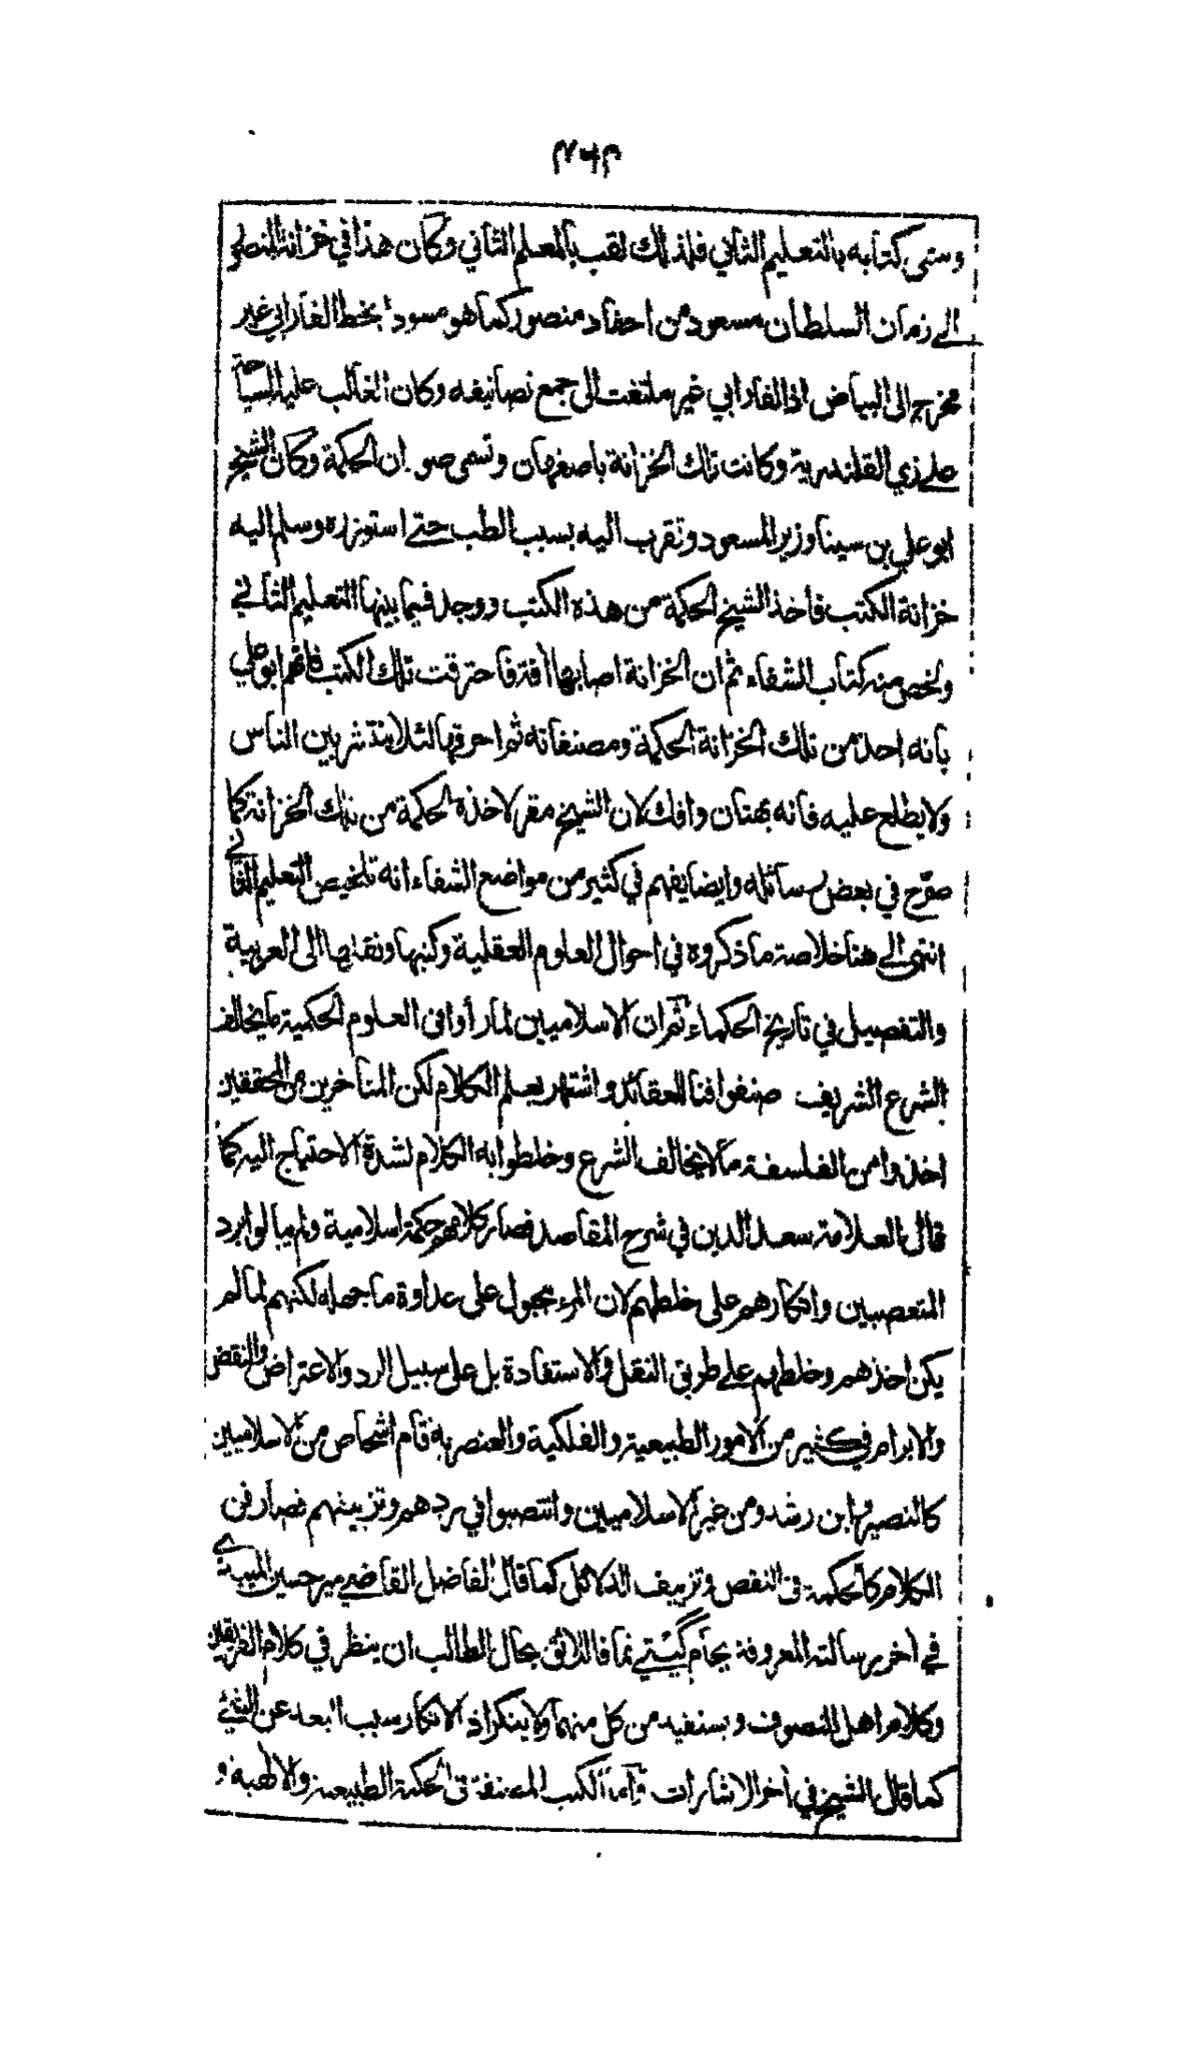 ٤٦٣
وسمى كتابه بالتعليم الثاني فلذلك لقب بالمعلم الثاني وكان هذا في خزانة المنصور
الى زمان السلطان مسعود من احفاد منصور كما هو مسودا بخط الفارابي غير
مخرج الى البياض اذ الفارابي غير ملتفت الى جمع تصانيفه وكان الغالب عليه السياحة
على زي القلندرية وكانت تلك الخزانة باصفهان وتسمى صوان الحكمة وكان الشيخ
ابو علي بن سينا وزير المسعود وتقرب اليه بسبب الطب حتى استوزره وسلم اليه
خزانة الكتب فاخذ الشيخ الحكمة من هذه الكتب ووجد فيما بينها التعليم الثاني
ولخص منه كتاب الشفاء ثم ان الخزانة اصابها آفة فاحترقت تلك الكتب فاتهم ابو علي
بانه احذ من تلك الخزانة الحكمة ومصنفاته ثم احرقها لئلا ينتشر بين الناس
ولا يطلع عليه فانه بهتان وافك لان الشيخ مقر لاخذه الحكمة من تلك الخزانة كما
صرح في بعض رسائله وايضا يفهم في كثير من مواضع الشفاء انه تلخيص التعليم الثاني
انتهى الى هنا خلاصة ما ذكروه في احوال العلوم العقلية وكتبها ونقلها الى العربية
والتفصيل في تاريخ الحكماء ثم ان الاسلاميين لما رأوا في العلوم الحكمية ما يخالف
الشرع الشريف صنفوا فنا للعقائد واشتهر بعلم الكلام لكن المتاخرين من المحققين
اخذوا من الفلسفة ما لا يخالف الشرع وخلطوا به الكلام لشدة الاحتياج اليه كما
قال العلامة سعد الدين في شرح المقاصد فصار كلامهم حكمة اسلامية ولم يبالوا برد
المتعصبين وانكارهم على خلطهم لان المرء مجبول على عداوة ما جهله لكنهم لما لم
يكن اخذهم وخلطهم على طريق النقل والاستفادة بل على سبيل الرد والاعتراض والنقض
والابرام في كثير من الامور الطبيعية والفلكية والعنصرية قام اشخاص من الاسلاميين
كالنصير وابن رشد ومن غير الاسلاميين وانتصبوا في ردهم وتزييفهم فصار فن
الكلام كالحكمة في النقض وتزييف الدلائل كما قال الفاضل القاضي مير حسين الميبدي
في آخر رسالته المعروفة بجام گيتي نما فاللائق بحال الطالب ان ينظر في كلام الفريقين
وكلام اهل التصوف ويستفيد من كل منهما ولا ينكر اذ الانكار سبب البعد عن الشئ
كما قال الشيخ في آخر الاشارات واما الكتب المصنفة في الحكمة الطبيعية والالهية و